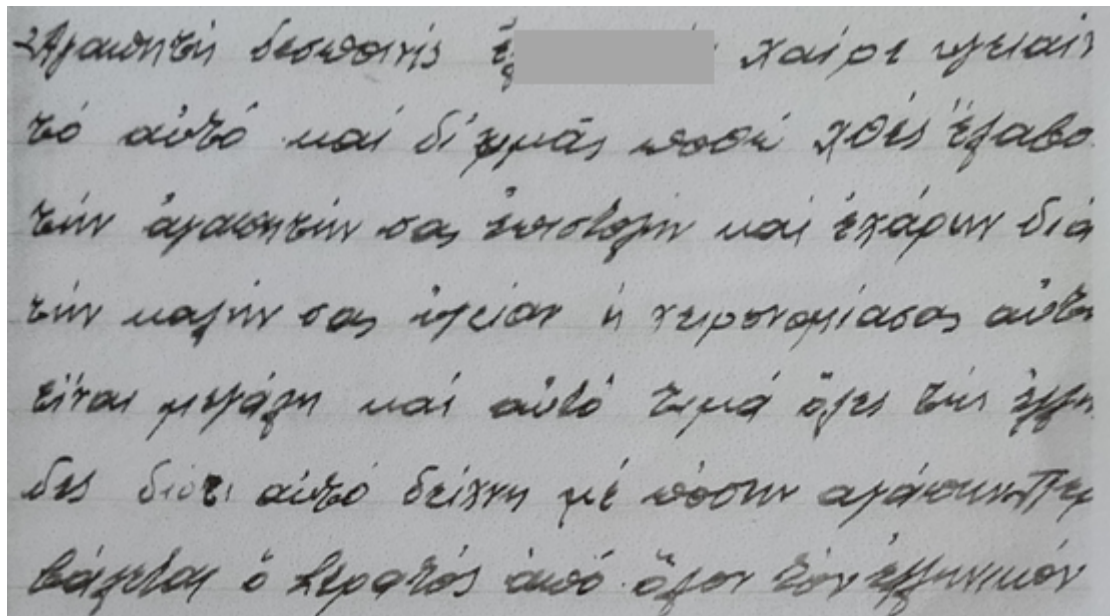 Ἀγαπητή δεσποινίς χαῖρε ὑγειαίν
τό αὐτό καί δι' ἡμᾶς ποθῶ χθές ἔλαβα
τήν ἀγαπητήν σας ἐπιστολήν καί ἐχάρην διά
τήν καλήν σας ὑγείαν ἡ χειρονομίασας αὐτή
εἶναι μεγάλη καί αὐτό τιμά ὅλες τίς ἑλλη
δες διότι αὐτό δείχνη μέ πόσην αγάπην Περ
βάλεται ὁ στρατός ἀπό ὅλον τόν ἑλληνικόν